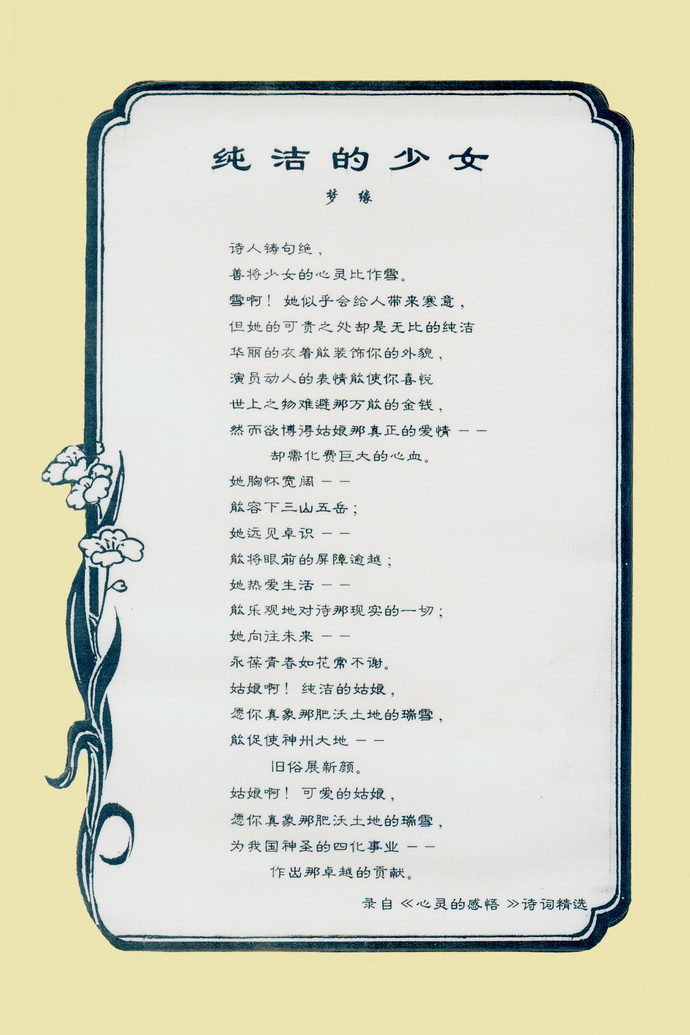 纯洁的少女
梦缘
诗人铸句绝，
善将少女的心灵比作雪。
雪啊！她似乎会给人带来寒意，
但她的可贵之处却是无比的纯洁
华丽的衣着能装饰你的外貌，
演员动人的表情能使你喜悦
世上之物难避那万能的金钱，
然而欲博得姑娘那真正的爱情——
却需化费巨大的心血。
她胸怀宽阔——
能容下三山五岳；
她远见卓识——
能将眼前的屏障逾越；
她热爱生活——
能乐观地对待那现实的一切；
她向往未来——
永葆青春如花常不谢。
姑娘啊！纯洁的姑娘，
愿你真象那肥沃土地的瑞雪，
能促使神州大地——
旧俗展新颜。
姑娘啊！可爱的姑娘，
愿你真象那肥沃土地的瑞雪，
为我国神圣的四化事业——
作出那卓越的贡献。
录自《心灵的感悟》诗词精选